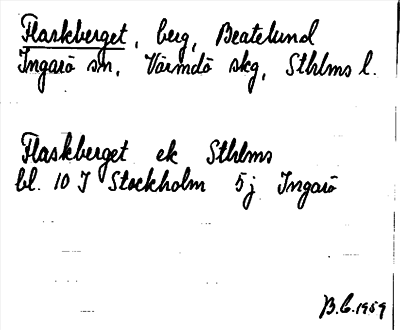 Flaskberget, berg, Beatelund
Ingarö sn, Värmdö skg, Sthlms l.
Flaskberget ek Sthlms
bl. 10 J Stockholm 5j Ingarö
B.C. 1959